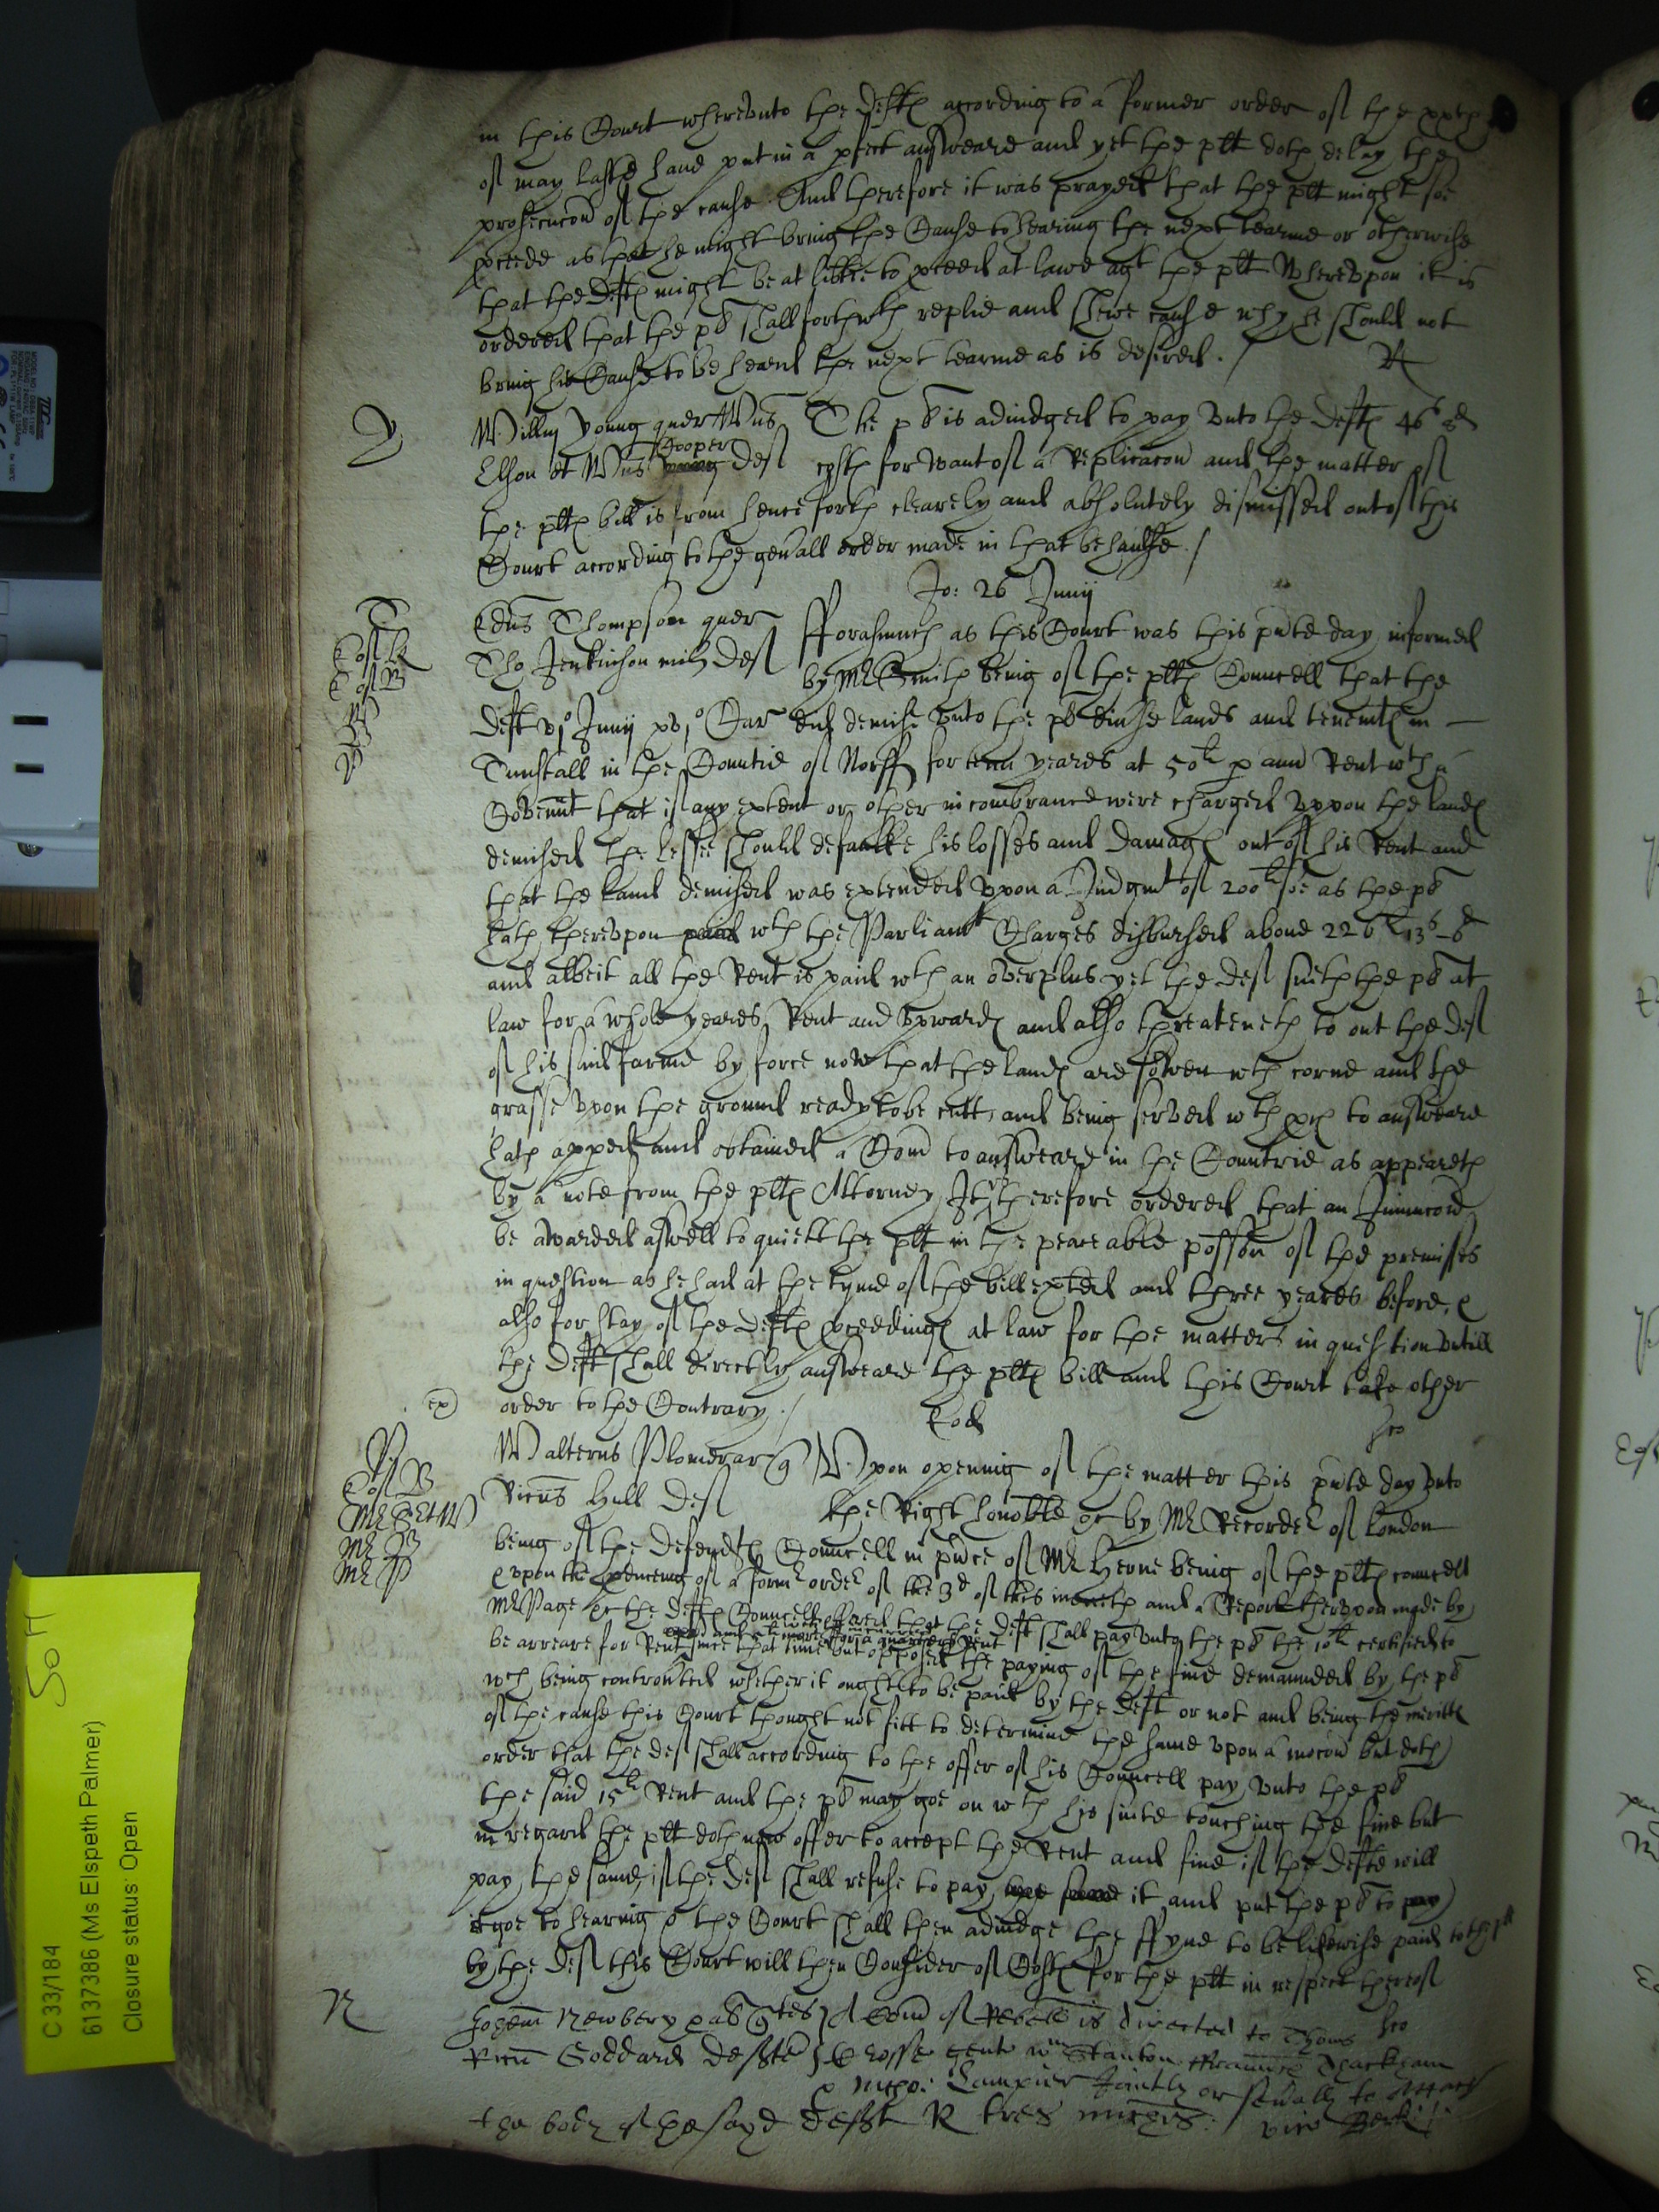 in this Court whereunto the Deftes according to a former order of the xxth
of may laste have put in a pfect answeare and yet the plt doth delay the
prosecucon of the cause And therefore it was prayed that the plt might soe
pceede as that he might bring the Cause to hearing the next tearme or otherwise
that the Deftes might be at libtie to pceed at lawe agt the plt Whereupon it is
ordered that the pl shall forthwth replie and shewe cause why he should not
bring his Cause to be heard the next tearme as is desired. /
Y
Willm Young quer Wms The pl is adiudged to pay unto the Deftes 46s 8d
Elson et Wms Cooper Def costes for want of a Replicacon and the matter of
the pltes bill is from henceforth clearely and absolutely dismissed out of this
Court according to the genall order made in that behaulfe. /
Jo: 26 Junij
T
Edus Thompson quer fforasmuch as this Court was this pnte day informed
Tho Jenkinson mil Def by Mr Smith being of the pltes Councell that the
Deft Junij Car did demise unto the pl divse lands and tenemtes in
Tunstall in the Countie of Norff for tenn yeares at 50li p ann Rent wth a
Covennt that if any extent or other incombrance were charged uppon the landes
demised the lessee should defaulke his losses and damages out of his Rent and
that the land demised was extended upon a Judgmt of 200li soe as the pl
hath thereupon wth the Parliamt Charges disbursed above 226li 13s 8d
and albeit all the Rent is paid wth an overplus yet the def sueth the pl at
law for a whole yeares Rent and upwardes and also threateneth to out the Def
of his said farme by force now that the landes are sowen wth corne and the
grasse upon the ground ready to be cutt, and being served wth pces to answeare
hath apped and obtained a Com to answeare in the Countrie as appeareth
by a note from the pltes Attorney It is therefore ordered that an Iniunccon
be awarded aswell to quiett the plt in the peaceable possion of the premisses
in question as he had at the tyme of the bill exted and three yeares before, &
also for stay of the Deftes pceedinges at law for the matters in question untill
the Deft shall directly answeare the pltes bill and this Court take other
ex
order to the Contrary. /
Eod
P
Walterus Plomer ar Upon opening of the matter this pnte day unto
Ricus Hull Def the Right honoble &c by Mr Recorder of London
being of the Defendtes Councell in pnce of Mr Herne being of the pltes councell
& upon the pducing of a former order of the 3d of this moneth and a Report therupon made by
Mr Page &c the Deftes Councell offered that the Deft shall pay unto the pl the 10li certified to
be arreare for Rent since that time but opposed the paying of the fine demaunded by the pl
wch being controverted whether it ought to be paid by the Deft or not and being the meritts
of the cause this Court thought not fitt to determine the same upon a mocon but doth
order that the def shall according to the offer of his Councell pay unto the pl
the said 15li Rent and the pl may goe on wth his suite touching the fine but
in regard the plt doth now offer to accept the Rent and fine if the Defte will
pay the same, if the Def shall refuse to pay it and put the pl to
goe to hearing & the Court shall then adiudge the ffyne to be likewise paid to the plt
by the Def this Court will then Consider of Costes for the plt in respect thereof
N
Johem Newbery A Com of Rebell is directed to Thoms
Ricu Goddard defte Crosse gent Wm Stanton Thackham
& Nicho: Jointly or sevally to Attach
the body of the sayd defte
C 33/184
6137386 (Ms Elspeth Palmer)
Closure status: Open